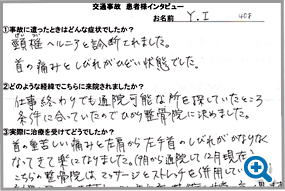 交通事故 患者様インタビュー
お名前 Y.I
①事故に遭ったときはどんな症状でしたか?
頸椎ヘルニアと診断されました。
首の痛みとしびれがひどい状態でした。
②どのような経緯でこちらに来院されましたか?
仕事終わりでも通院可能な所を探していたところ
条件に合っていたのでひかり整骨院に決めました。
③実際に治療を受けてどうでしたか?
首の重苦しい痛みと左肩から左手首のしびれがかなりなく
なってきて楽になりました。
こちらの整骨院はマッサージとストレッチを併用してい